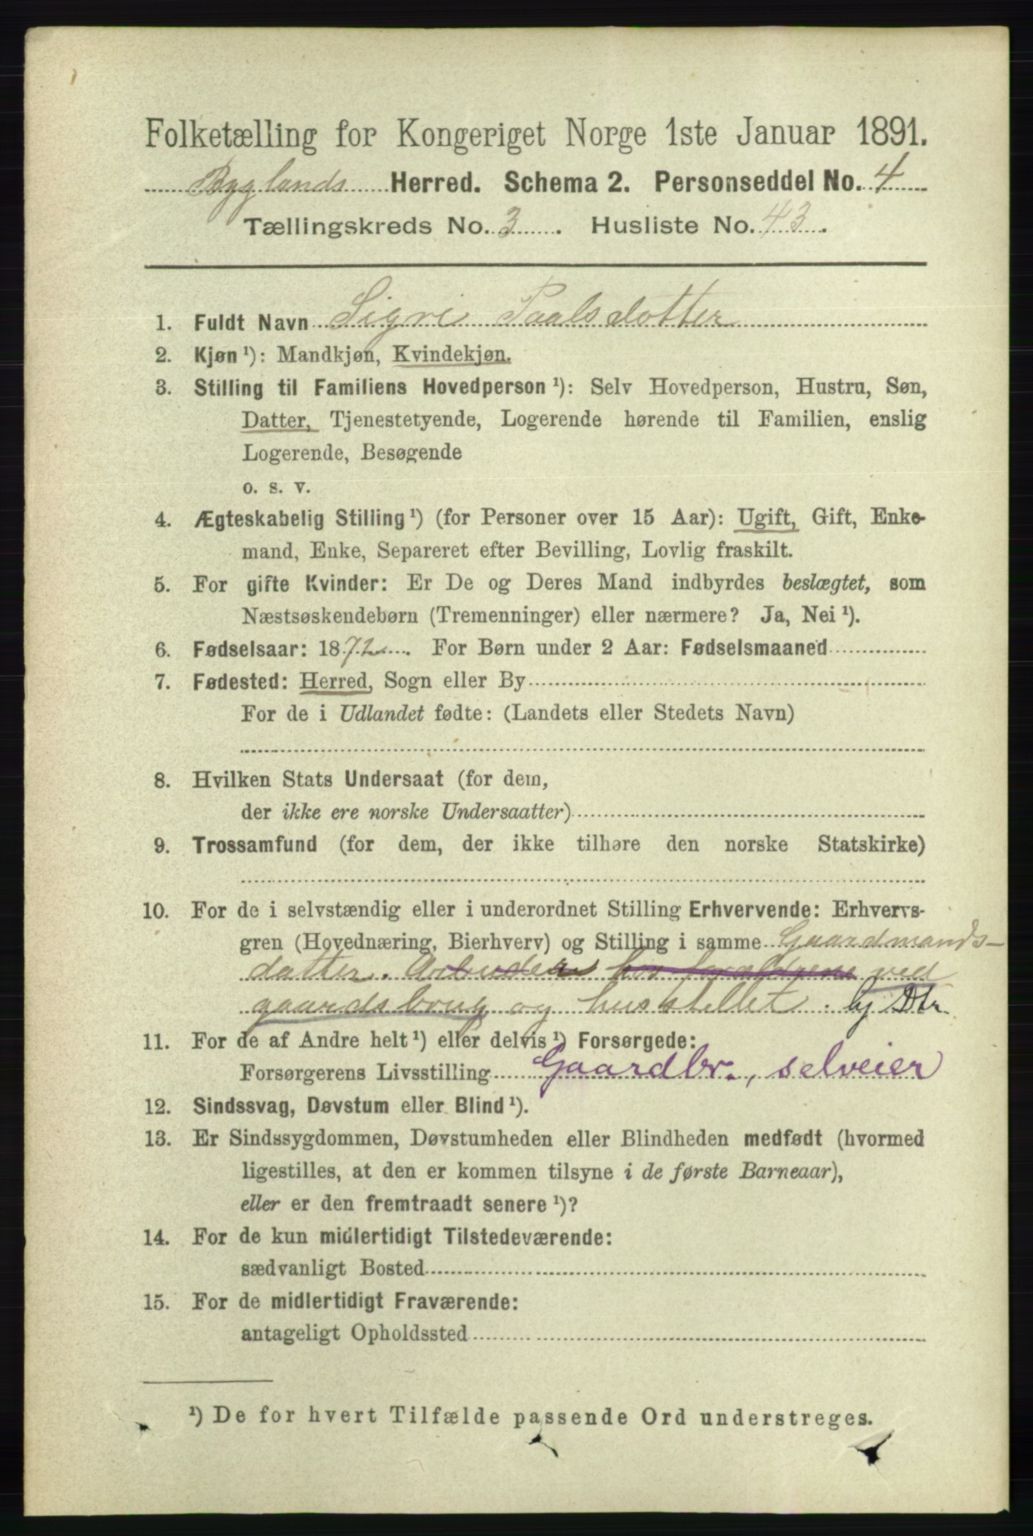 Folketælling for Kongeriget Norge 1ste Januar 1891.
Byglands Herred. Schema 2. Personseddel No. 4
Tællingskreds No. 3. Husliste No. 43.
1. Fuldt Navn Sigri Paalsdotter
2. Kjøn ¹): Mandkjøn, Kvindekjøn.
3. Stilling til Familiens Hovedperson ¹): Selv Hovedperson, Hustru, Søn,
Datter, Tjenestetyende, Logerende hørende til Familien, enslig
Logerende, Besøgende
o. s. v.
4. Ægteskabelig Stilling ¹) (for Personer over 15 Aar): Ugift, Gift, Enke-
mand, Enke, Separeret efter Bevilling, Lovlig fraskilt.
5. For gifte Kvinder: Er De og Deres Mand indbyrdes beslægtet, som
Næstsøskendebørn (Tremenninger) eller nærmere? Ja, Nei ¹).
6. Fødselsaar: 1872. For Børn under 2 Aar: Fødselsmaaned
7. Fødested: Herred, Sogn eller By
For de i Udlandet fødte: (Landets eller Stedets Navn)
8. Hvilken Stats Undersaat (for dem,
der ikke ere norske Undersaatter)
9. Trossamfund (for dem, der ikke tilhøre den norske Statskirke)
10. For de i selvstændig eller i underordnet Stilling Erhvervende: Erhvervs-
gren (Hovednæring, Bierhverv) og Stilling i samme Gaardmands-
datter. Arbeider hos forældrene ved
gaardsbrug og husstellet. hj Dtr
11. For de af Andre helt ¹) eller delvis ¹) Forsørgede:
Forsørgerens Livsstilling Gaardbr., selveier
12. Sindssvag, Døvstum eller Blind ¹).
13. Er Sindssygdommen, Døvstumheden eller Blindheden medfødt (hvormed
ligestilles, at den er kommen tilsyne i de første Barneaar),
eller er den fremtraadt senere ¹)?
14. For de kun midlertidigt Tilstedeværende:
sædvanligt Bosted
15. For de midlertidigt Fraværende:
antageligt Opholdssted
¹) De for hvert Tilfælde passende Ord understreges.